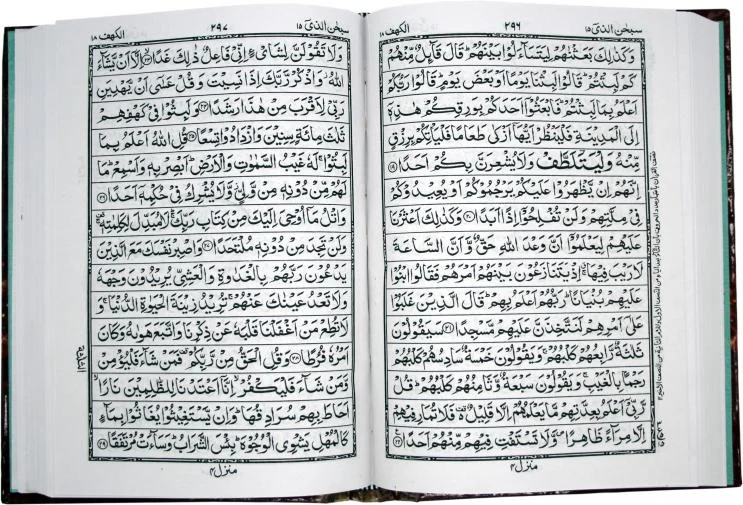 سبحن الذی ۱۵
۲۹۶
الكهف ۱۸
وَكَذٰلِكَ بَعَثْنٰهُمْ لِيَتَسَآءَلُوْا بَيْنَهُمْ ؕ قَالَ قَآئِلٌ مِّنْهُمْ
كَمْ لَبِثْتُمْ ؕ قَالُوْا لَبِثْنَا يَوْمًا اَوْ بَعْضَ يَوْمٍ ؕ قَالُوْا رَبُّكُمْ
اَعْلَمُ بِمَا لَبِثْتُمْ ؕ فَابْعَثُوْۤا اَحَدَكُمْ بِوَرِقِكُمْ هٰذِهٖۤ
اِلَى الْمَدِيْنَةِ فَلْيَنْظُرْ اَيُّهَاۤ اَزْكٰى طَعَامًا فَلْيَاْتِكُمْ بِرِزْقٍ
مِّنْهُ وَلْيَتَلَطَّفْ وَلَا يُشْعِرَنَّ بِكُمْ اَحَدًا ۱۹
اِنَّهُمْ اِنْ يَّظْهَرُوْا عَلَيْكُمْ يَرْجُمُوْكُمْ اَوْ يُعِيْدُوْكُمْ
فِيْ مِلَّتِهِمْ وَلَنْ تُفْلِحُوْۤا اِذًا اَبَدًا ۲۰ وَكَذٰلِكَ اَعْثَرْنَا
عَلَيْهِمْ لِيَعْلَمُوْۤا اَنَّ وَعْدَ اللّٰهِ حَقٌّ وَّاَنَّ السَّاعَةَ
لَا رَيْبَ فِيْهَا ۚ اِذْ يَتَنَازَعُوْنَ بَيْنَهُمْ اَمْرَهُمْ فَقَالُوا ابْنُوْا
عَلَيْهِمْ بُنْيَانًا ؕ رَبُّهُمْ اَعْلَمُ بِهِمْ ؕ قَالَ الَّذِيْنَ غَلَبُوْا
عَلٰۤى اَمْرِهِمْ لَنَتَّخِذَنَّ عَلَيْهِمْ مَّسْجِدًا ۲۱ سَيَقُوْلُوْنَ
ثَلٰثَةٌ رَّابِعُهُمْ كَلْبُهُمْ ۚ وَيَقُوْلُوْنَ خَمْسَةٌ سَادِسُهُمْ كَلْبُهُمْ
رَجْمًۢا بِالْغَيْبِ ۚ وَيَقُوْلُوْنَ سَبْعَةٌ وَّثَامِنُهُمْ كَلْبُهُمْ ؕ قُلْ
رَّبِّيْۤ اَعْلَمُ بِعِدَّتِهِمْ مَّا يَعْلَمُهُمْ اِلَّا قَلِيْلٌ ۫ فَلَا تُمَارِ فِيْهِمْ
اِلَّا مِرَآءً ظَاهِرًا ۪ وَّلَا تَسْتَفْتِ فِيْهِمْ مِّنْهُمْ اَحَدًا ۲۲
منزل ۴
سبحن الذی ۱۵
۲۹۷
الكهف ۱۸
وَلَا تَقُوْلَنَّ لِشَايْءٍ اِنِّيْ فَاعِلٌ ذٰلِكَ غَدًا ۲۳ اِلَّاۤ اَنْ يَّشَآءَ
اللّٰهُ ؗ وَاذْكُرْ رَّبَّكَ اِذَا نَسِيْتَ وَقُلْ عَسٰۤى اَنْ يَّهْدِيَنِ
رَبِّيْ لِاَقْرَبَ مِنْ هٰذَا رَشَدًا ۲۴ وَلَبِثُوْا فِيْ كَهْفِهِمْ
ثَلٰثَ مِائَةٍ سِنِيْنَ وَازْدَادُوْا تِسْعًا ۲۵ قُلِ اللّٰهُ اَعْلَمُ بِمَا
لَبِثُوْا ۚ لَهٗ غَيْبُ السَّمٰوٰتِ وَالْاَرْضِ ؕ اَبْصِرْ بِهٖ وَاَسْمِعْ ؕ مَا
لَهُمْ مِّنْ دُوْنِهٖ مِنْ وَّلِيٍّ ؗ وَّلَا يُشْرِكُ فِيْ حُكْمِهٖۤ اَحَدًا ۲۶
وَاتْلُ مَاۤ اُوْحِيَ اِلَيْكَ مِنْ كِتَابِ رَبِّكَ ۚ لَا مُبَدِّلَ لِكَلِمٰتِهٖ ۚ
وَلَنْ تَجِدَ مِنْ دُوْنِهٖ مُلْتَحَدًا ۲۷ وَاصْبِرْ نَفْسَكَ مَعَ الَّذِيْنَ
يَدْعُوْنَ رَبَّهُمْ بِالْغَدٰوةِ وَالْعَشِيِّ يُرِيْدُوْنَ وَجْهَهٗ
وَلَا تَعْدُ عَيْنٰكَ عَنْهُمْ ۚ تُرِيْدُ زِيْنَةَ الْحَيٰوةِ الدُّنْيَا ۚ وَ
لَا تُطِعْ مَنْ اَغْفَلْنَا قَلْبَهٗ عَنْ ذِكْرِنَا وَاتَّبَعَ هَوٰىهُ وَكَانَ
اَمْرُهٗ فُرُطًا ۲۸ وَقُلِ الْحَقُّ مِنْ رَّبِّكُمْ ۫ فَمَنْ شَآءَ فَلْيُؤْمِنْ
وَّمَنْ شَآءَ فَلْيَكْفُرْ ۙ اِنَّاۤ اَعْتَدْنَا لِلظّٰلِمِيْنَ نَارًا ۙ
اَحَاطَ بِهِمْ سُرَادِقُهَا ؕ وَاِنْ يَّسْتَغِيْثُوْا يُغَاثُوْا بِمَآءٍ
كَالْمُهْلِ يَشْوِي الْوُجُوْهَ ؕ بِئْسَ الشَّرَابُ ؕ وَسَآءَتْ مُرْتَفَقًا ۲۹
منزل ۴